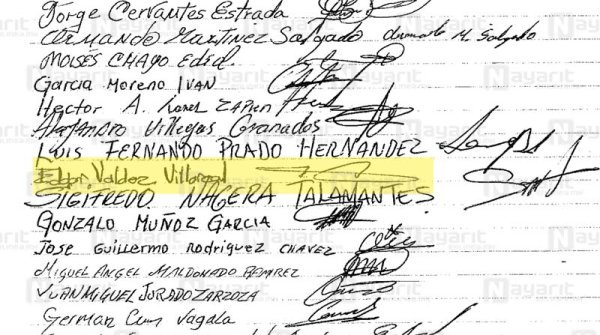 Jorge Cervantes Estrada
Armando Martinez Salgado Armando M. Salgado
MOISÉS CHAGO Edid
Garcia Moreno IVAN
Hector A. ZAPIEN
Alejandro Villegas Granados
LUIS FERNANDO PRADO HERNANDEZ
Edgar Valdez Villareal
SIGIFREDO NAGERA TALAMANTES
GONZALO MUÑOZ GARCIA
JOSE Guillermo Rodriguez CHAVEZ
MIGUEL ANGEL MALDONADO RAMIREZ
JUAN MIGUEL JURADO ZARZOZA
German
Nayarit